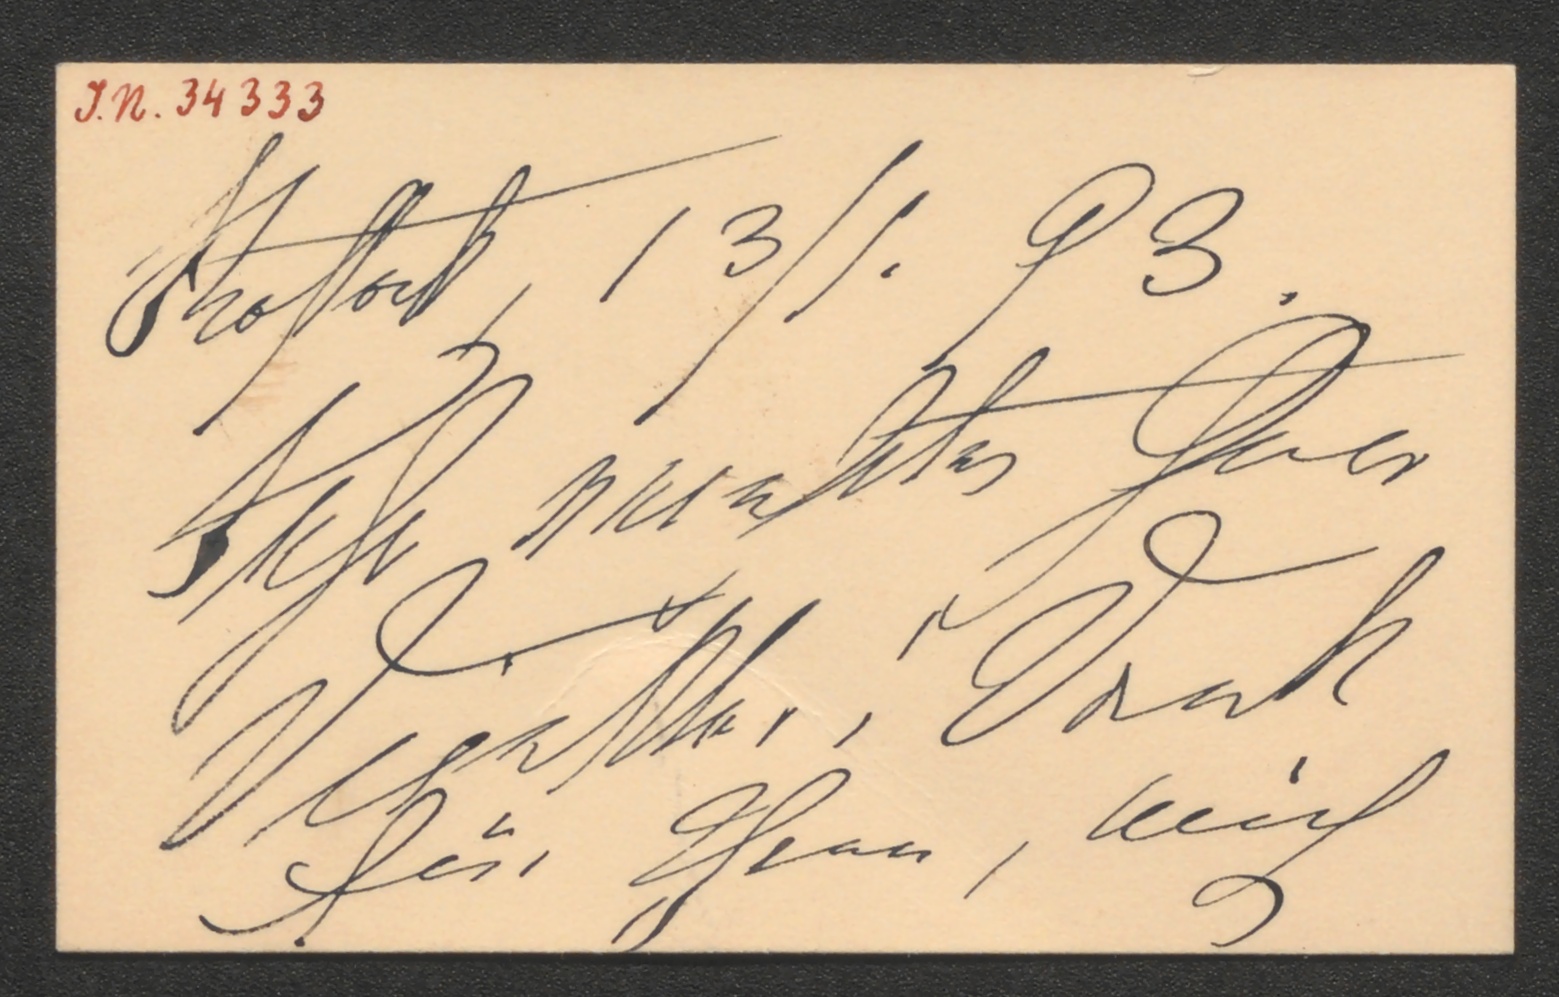 J.N. 34333
Rostock, 13/1. 93.
Sehr verehrter Herr
Dank
für Ihren, mich